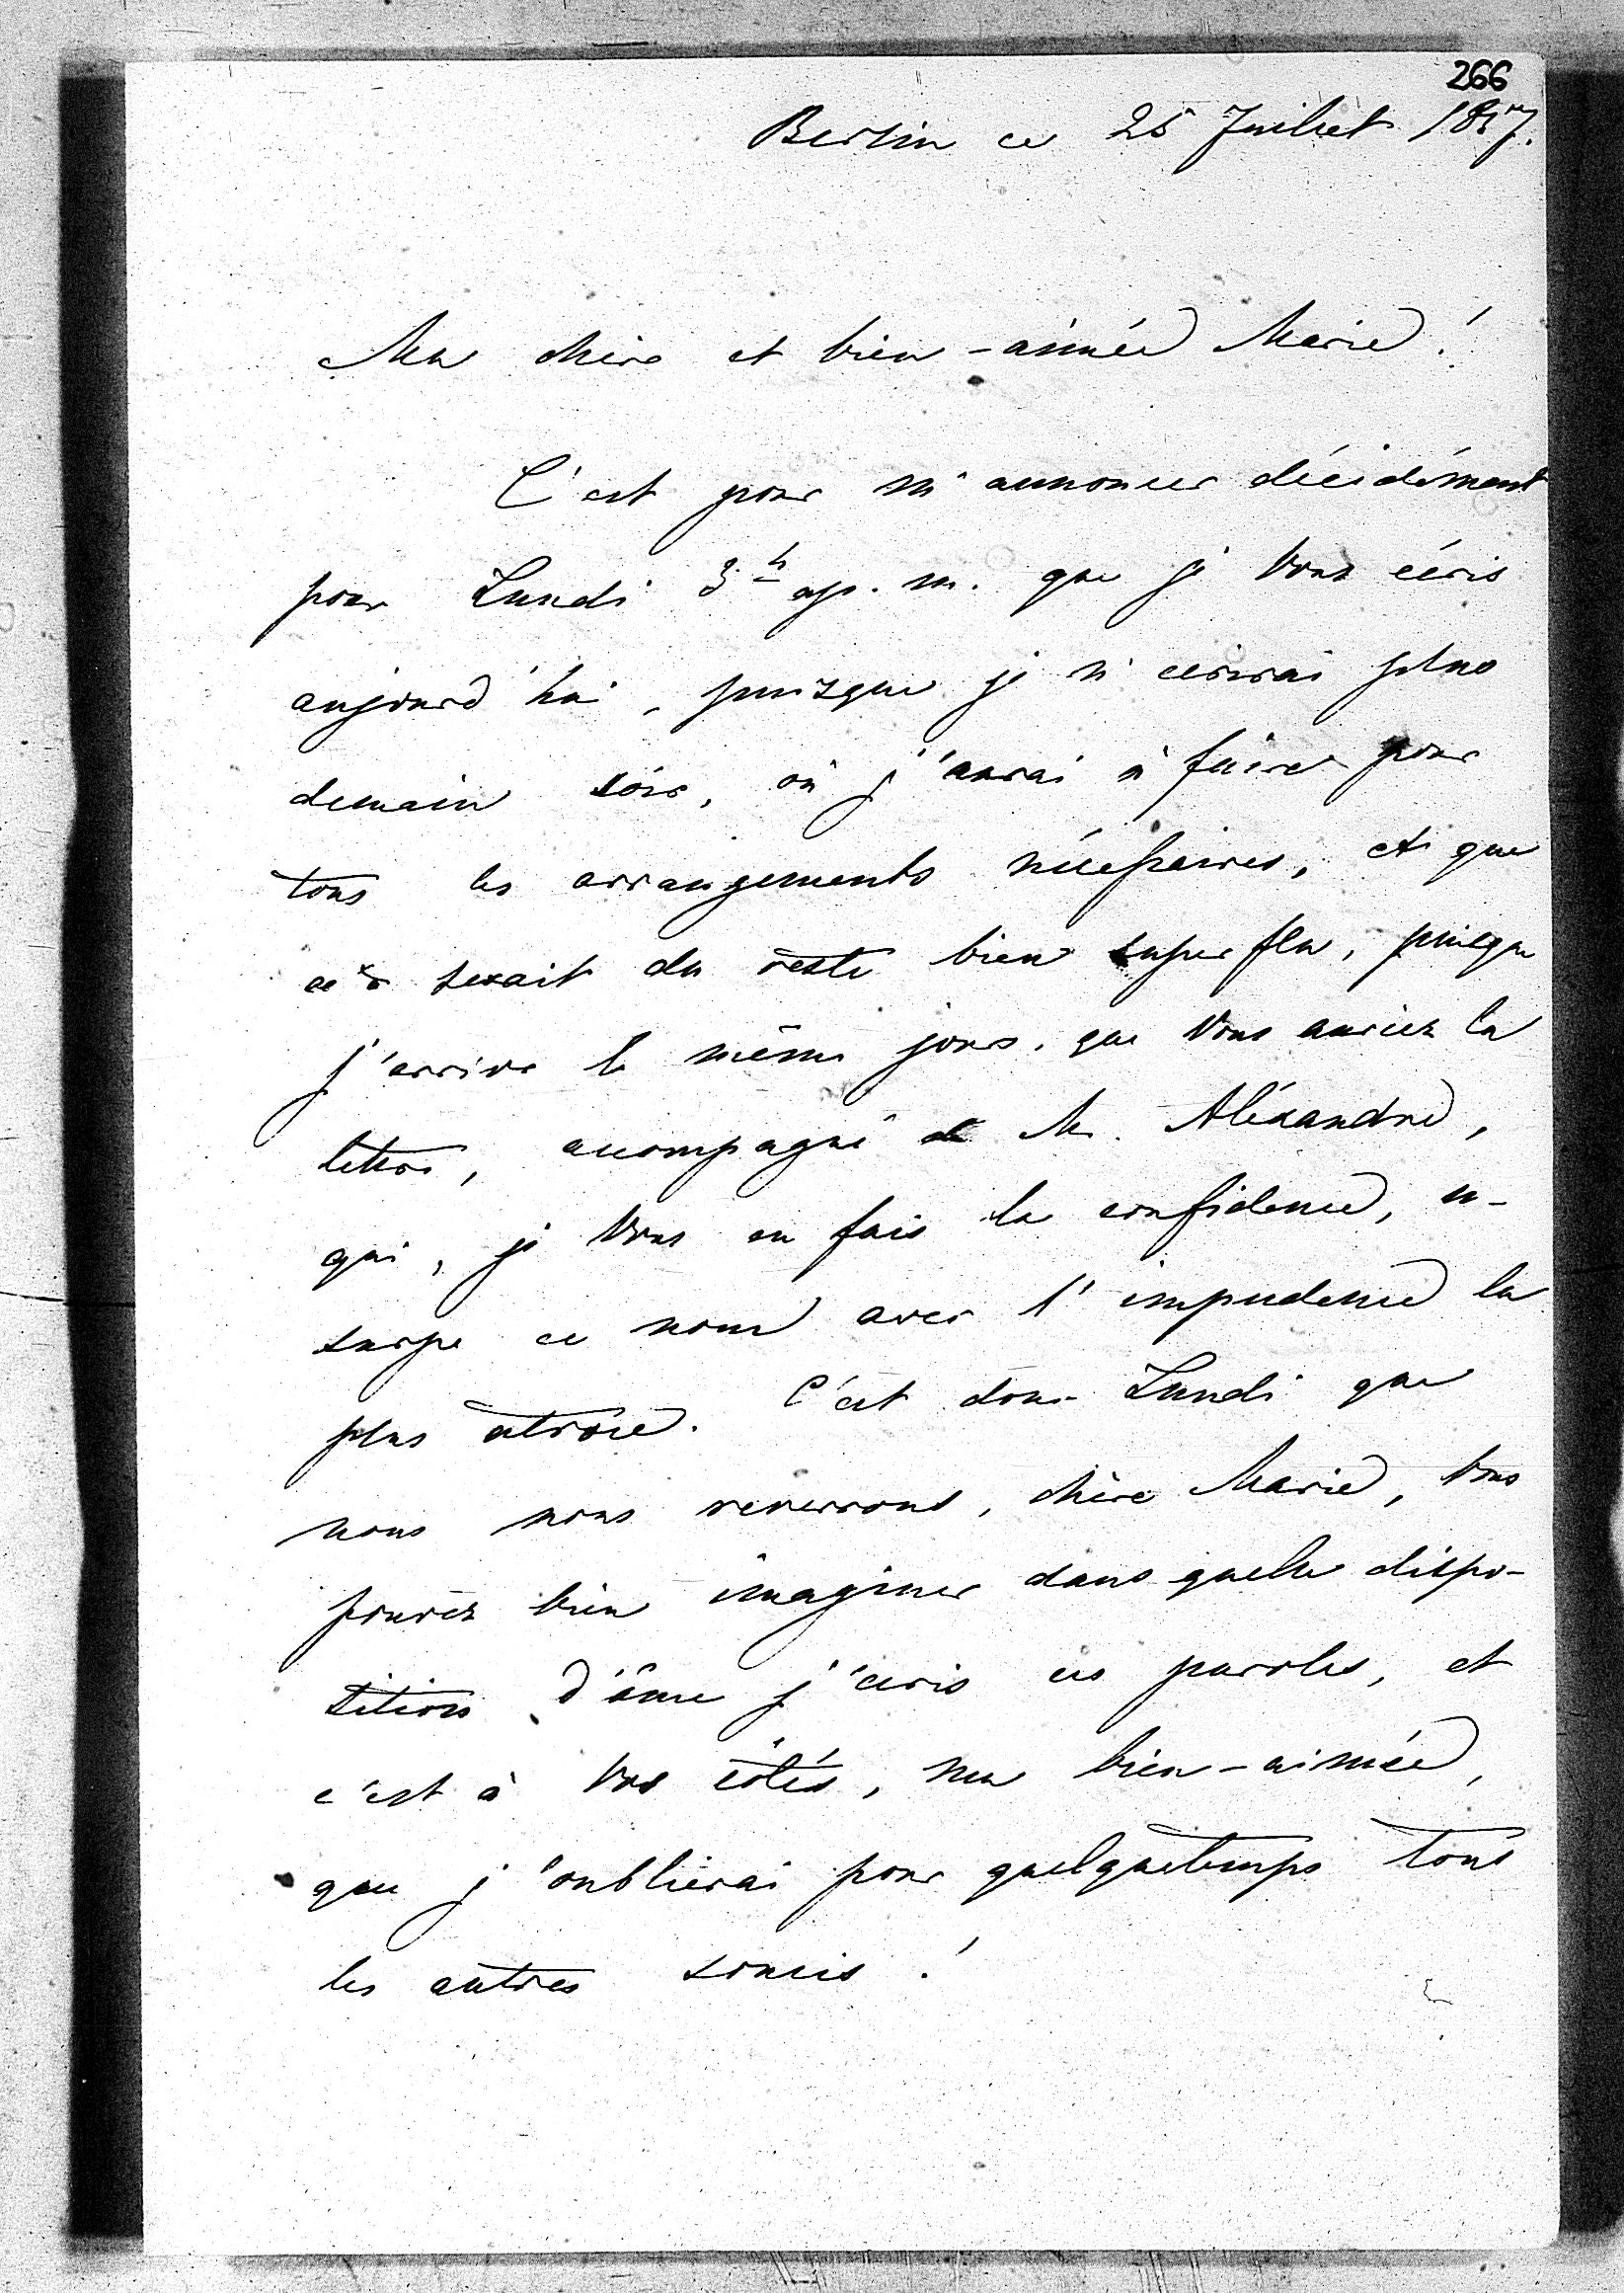 266
Berlin ce 25 Juillet 1857.
Ma chère et bien-aimée Marie!
C'est pour m'annoncer décidément
pour Lundi 3h ap. m. que je Vous écris
aujourd'hui, puisque je n'écrirai plus
demain soir, où j'aurai à faire pour
tous les arrangements nécessaires, et que
ce serait du reste bien superflu, puisque
j'arrive le même jour, que Vous auriez la
lettre, accompagné de M. Aléxandre,
qui, je Vous en fais la confidence, u-
surpe ce nom avec l'impudence la
plus atroce. C'est donc Lundi que
nous nous reverrons, chère Marie, Vous
pouvez bien imaginer dans quelle dispo-
sition d'âme j'écris ces paroles, et
c'est à Vos côtés, ma bien-aimée,
que j'oublierai pour quelquetemps tous
les autres soucis!